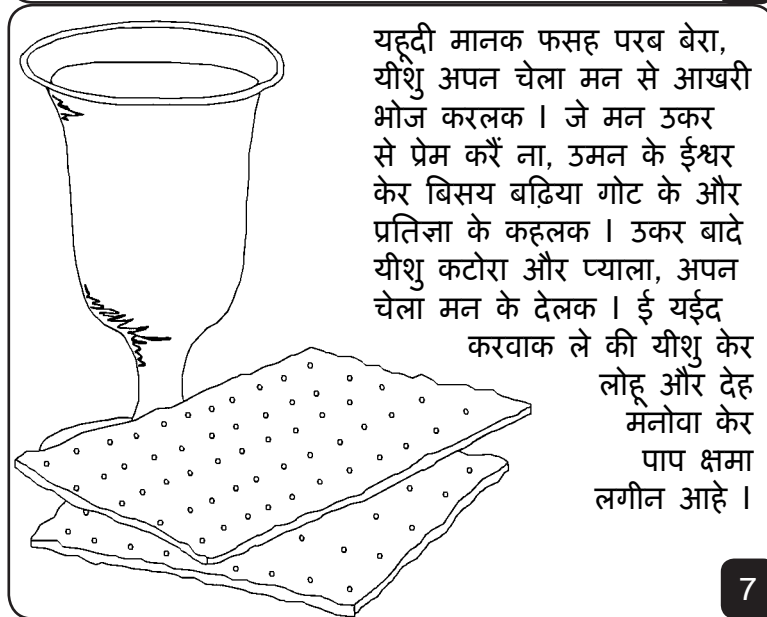 यहूदी मानक फसह परब बेरा,
यीशु अपन चेला मन से आखरी
भोज करलक । जे मन उकर
से प्रेम करैं ना, उमन के ईश्वर
केर बिसय बढ़िया गोट के और
प्रतिज्ञा के कहलक । उकर बादे
यीशु कटोरा और प्याला, अपन
चेला मन के देलक । ई यईद
करवाक ले की यीशु केर
लोहू और देह
मनोवा केर
पाप क्षमा
लगीन आहे ।
7